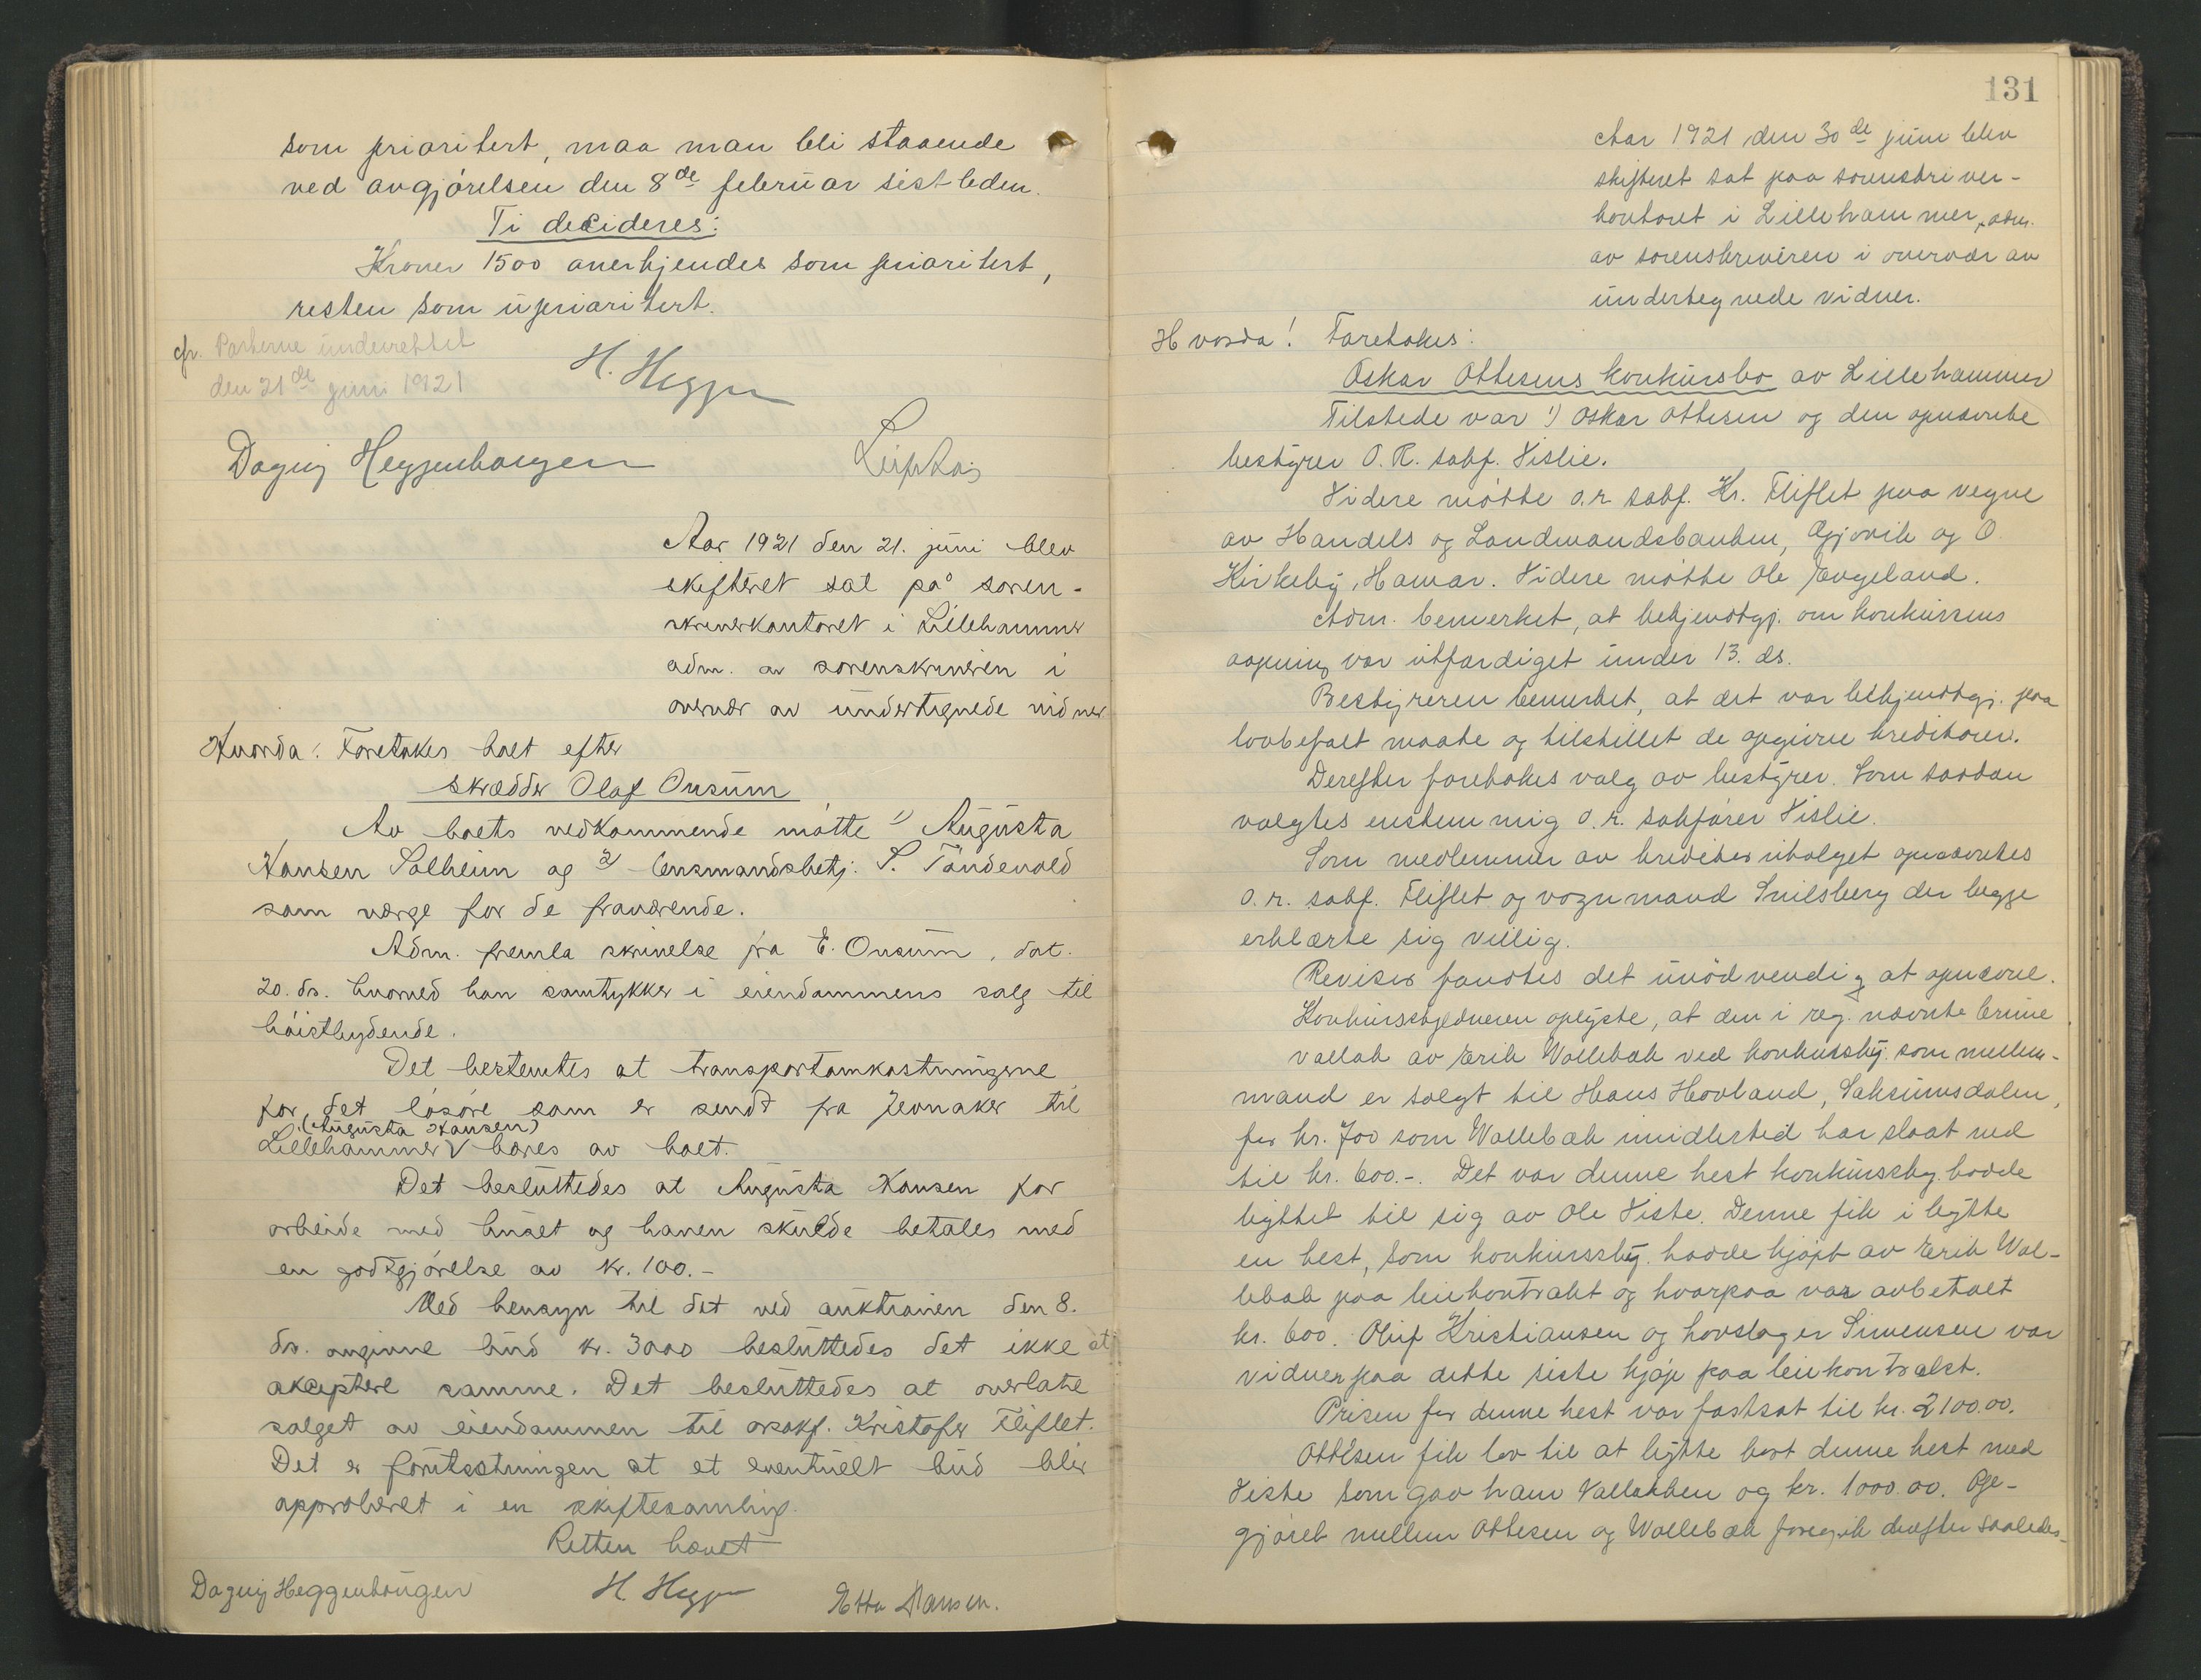 som prioritert, maa man bli staaende
ved avgjørelsen den 8de februar sistleden.
Ti decideres:
Kroner 1500 anerkjendes som prioritert,
resten som uprioritert.
cfr. Parterne underrettet
den 21de juni 1921
H. Heggen
Dagny Heggenhougen
Aar 1921 den 21. juni blev
skifteret sat på soren-
skriverkontoret i Lillehammer
adm. av sorenskriveren i
overvær av undertegnede vidner
Hvorda: Foretokes boet efter
skrædder Olaf Onsum
Av boets vedkommende møtte 1) Augusta
Hansen Solheim og 2) lensmandsbetj. S. Tandevold
som verge for de fraværende.
Adm. fremla skrivelse fra E. Onsum, dat.
20. ds. hvorved han samtykker i eiendommens salg til
høistbydende.
Det bestemtes at transportomkostningerne
for det løsøre som er sendt fra Jevnaker til
(Augusta Hansen)
Lillehammer V bæres av boet.
Det besluttedes at Augusta Hansen for
arbeide med huset og haven skulde betales med
en godtgjørelse av kr. 100.-
Med hensyn til det ved auktionen den 8.
ds. avgivne bud kr. 3000 besluttedes det ikke at
akceptere samme. Det besluttedes at overlate
salget av eiendommen til orsakf. Kristofer Fliflet.
Det er forutsetningen at et eventuelt bud blir
approberet i en skiftesamling.
Retten hævet
Dagny Heggenhougen H. Heggen Hansen.
131
Aar 1921 den 30de juni blev
skifteret sat paa sorenskriver-
kontoret i Lillehammer, adm.
av sorenskriveren i overvær av
undertegnede vidner.
Hvorda! Foretokes:
Oskar Ottesens konkursbo av Lillehammer
Tilstede var 1) Oskar Ottesen og den opnævnte
bestyrer O.R. sakf. Vislie.
Videre møtte o.r. sakf. Kr. Fliflet paa vegne
av Handels og Landmandsbanken, Gjøvik og O.
Kirkeby, Hamar. Videre møtte Ole Engeland.
Adm. bemerket, at bekjendtgj. om konkursens
aapning var utfærdiget under 13. ds.
Bestyreren bemerket, at det var bekjendtgj. paa
lovbefalt maate og tilstillet de opgivne kreditorer.
Derefter foretokes valg av bestyrer. Som saadan
valgtes enstemmig o.r. sakfører Vislie.
Som medlemmer av kreditorutvalget opnævntes
o.r. sakf. Fliflet og vognmand Snilsberg der begge
erklærte sig villig.
Revisor fandtes det unødvendig at opnævne.
Konkursskyldneren oplyste, at den i reg. nævnte brune
vallak av Erik Vollebæk ved konkurssky. som mellem-
mand er solgt til Hans Hovland, Saksumsdalen,
for kr. 700 som Wollebæk imidlertid har slaat ned
til kr. 600.-. Det var denne hest konkurssky. hadde
byttet til sig av Ole Viste. Denne fik i bytte
en hest, som konkurssky. hadde kjøpt av Erik Wol-
lebæk paa leiekontrakt og hvorpaa var avbetalt
kr. 600. Oluf Kristiansen og hovslager Simensen var
vidner paa dette siste kjøp paa leiekontrakt.
Prisen for denne hest var fastsat til kr. 2100.00.
Ottesen fik lov til at bytte bort denne hest med
Viste som gav ham Vallakken og kr. 1000.00. Op-
gjøret mellem Ottesen og Wollebæk foregik derefter saaledes